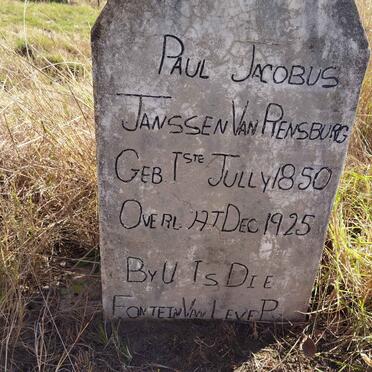 PAUL JACOBUS
JANSSEN VAN RENSBURG
GEB 1STE JULLY 1850
OVERL 17 DEC 1925
BY U IS DIE
FONTEIN VAN LEVER